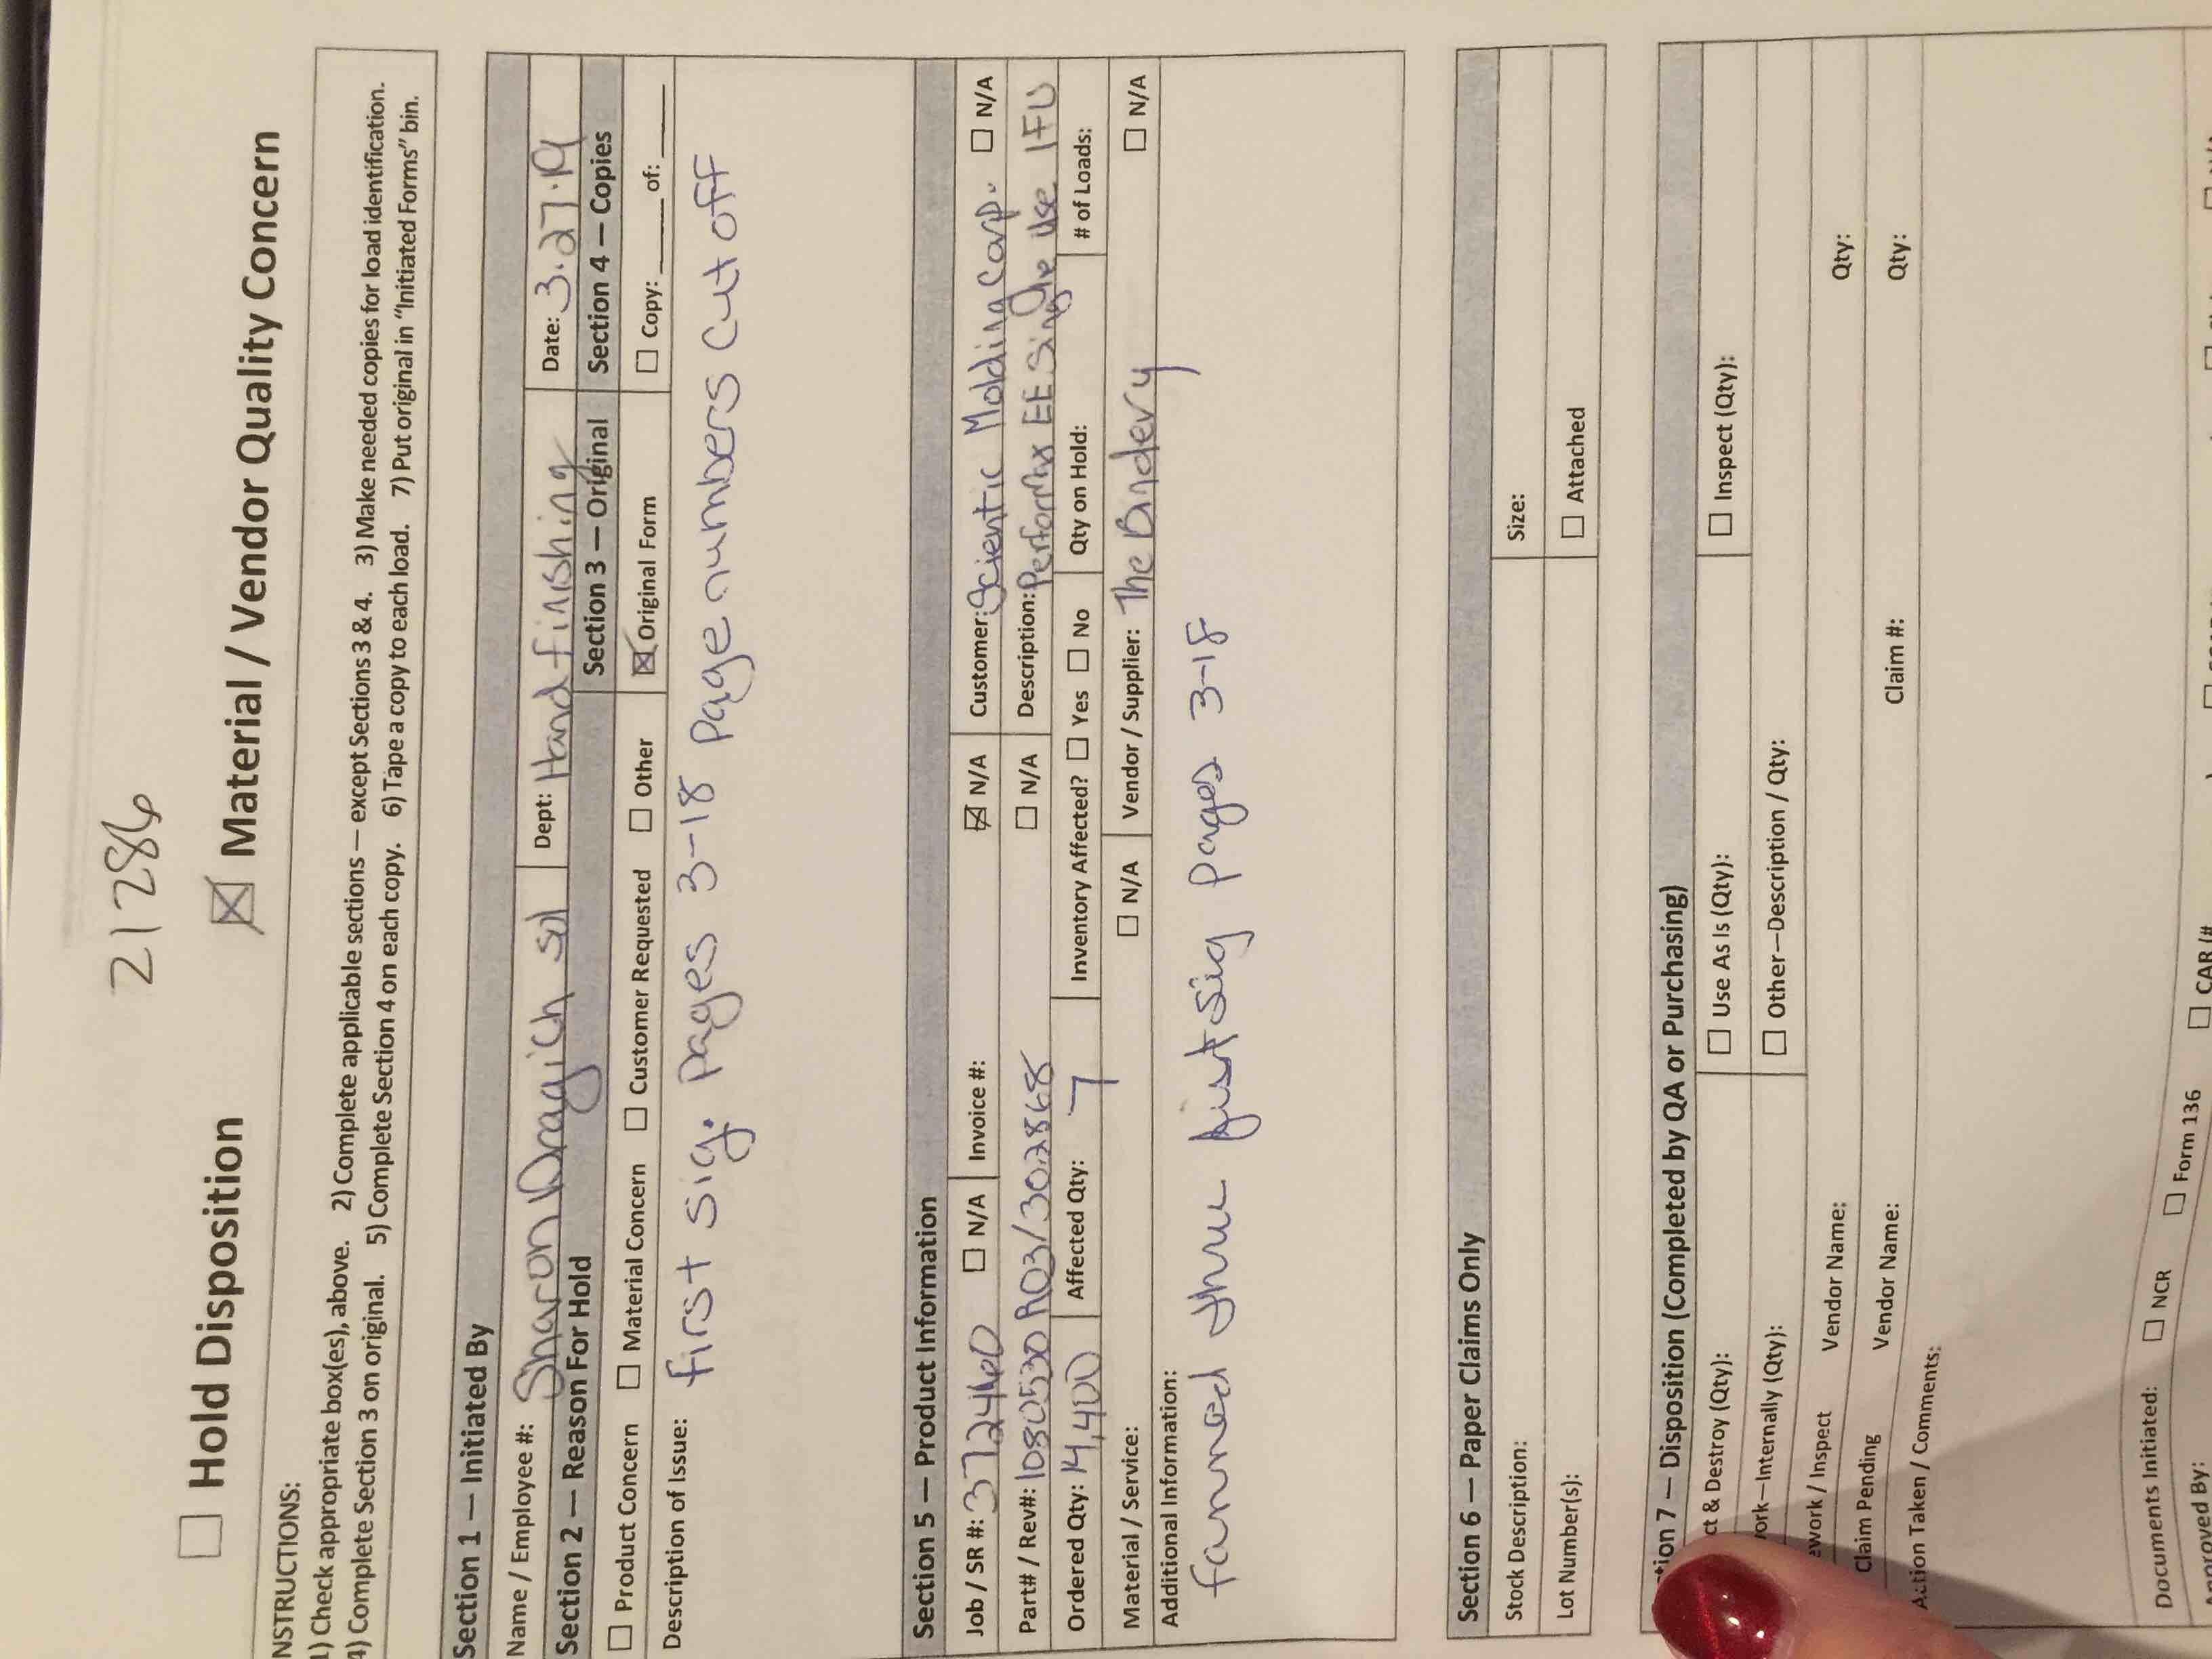 21286
☐ Hold Disposition ☒ Material / Vendor Quality Concern
NSTRUCTIONS:
1) Check appropriate box(es), above. 2) Complete applicable sections — except Sections 3 & 4. 3) Make needed copies for load identification.
4) Complete Section 3 on original. 5) Complete Section 4 on each copy. 6) Tape a copy to each load. 7) Put original in "Initiated Forms" bin.
Section 1 — Initiated By
Name / Employee #: Sharon Dragich Dept: Hand finishing Date: 3.27.19
Section 2 — Reason For Hold Section 3 — Original Section 4 — Copies
☐ Product Concern ☐ Material Concern ☐ Customer Requested ☐ Other ☒ Original Form ☐ Copy: ____ of: ____
Description of Issue: first sig. pages 3-18 page numbers cut off
Section 5 — Product Information
Job / SR #: 372460 ☐ N/A Invoice #: ☒ N/A Customer: Scientic Molding Corp. ☐ N/A
Part# / Rev#: 1080530 R03/302868 ☐ N/A Description: Performix EE Single Use IFU
Ordered Qty: 14,400 Affected Qty: 7 Inventory Affected? ☐ Yes ☐ No Qty on Hold: # of Loads:
Material / Service: ☐ N/A Vendor / Supplier: The Bindery ☐ N/A
Additional Information:
fanned thru first sig pages 3-18
Section 6 — Paper Claims Only
Stock Description: Size:
Lot Number(s): ☐ Attached
tion 7 — Disposition (Completed by QA or Purchasing)
ct & Destroy (Qty): ☐ Use As Is (Qty): ☐ Inspect (Qty):
ork—Internally (Qty): ☐ Other—Description / Qty:
ework / Inspect Vendor Name: Qty:
Claim Pending Vendor Name: Claim #: Qty:
Action Taken / Comments:
Documents Initiated: ☐ NCR ☐ Form 136 ☐ CAR (#
Approved By: